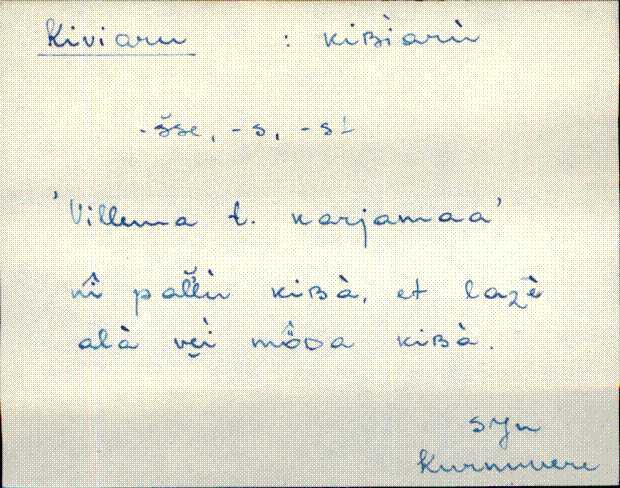 Kiviaru : kiʙìarù
-s̆se, -s, -st
'Villema t. karjamaa'
nî pal̆lù kiʙà, et lazè
alà vèi mȏᴅa kiʙà.
SJn
Kurnuvere